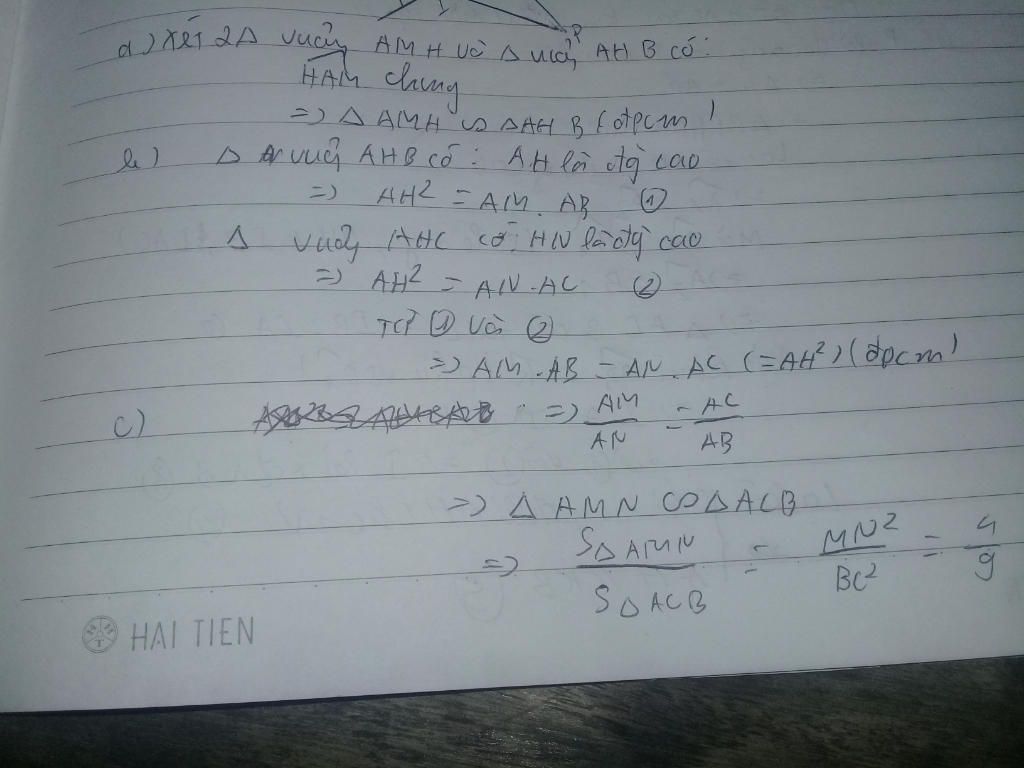 a) Xét 2Δ vuông AMH và Δ vuông AHB có:
HAM chung
=> Δ AMH ∽ ΔAHB (đpcm)
b) Δ vuông AHB có: AH là đg cao
=> AH² = AM. AB ①
Δ vuông AHC có: HN là đg cao
=> AH² = AN.AC ②
Từ ① và ②
=> AM.AB = AN.AC (=AH²) (đpcm)
c) => AM/AN = AC/AB
=> Δ AMN ∽ ΔACB
=> SΔAMN/SΔACB = MN²/BC² = 4/9
HAI TIEN